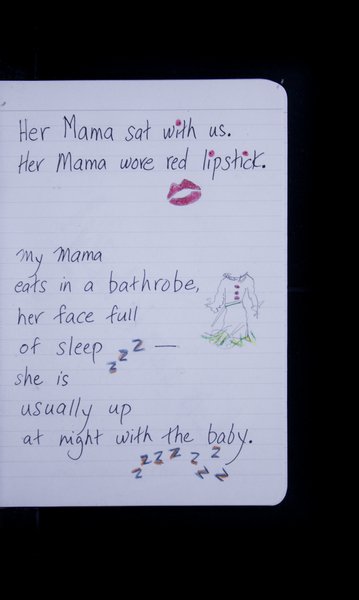 Her Mama sat with us.
Her Mama wore red lipstick.
My Mama
eats in a bathrobe,
her face full
of sleep zzz —
she is
usually up
at night with the baby.
z z z z z z z z